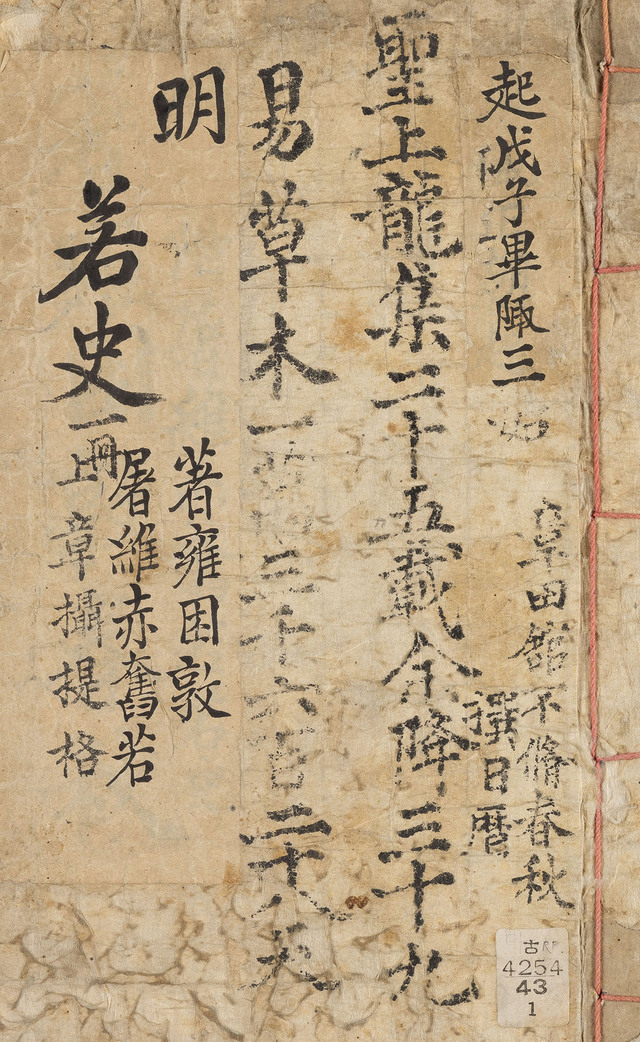 起戊子畢陬三
皐田館不脩春秋
撰日曆
聖上龍集二十五載余降三十九
易草木一
三千六百二十八天
明
若史
一冊
著雍困敦
屠維赤奮若
上章攝提格
古
4254
43
1